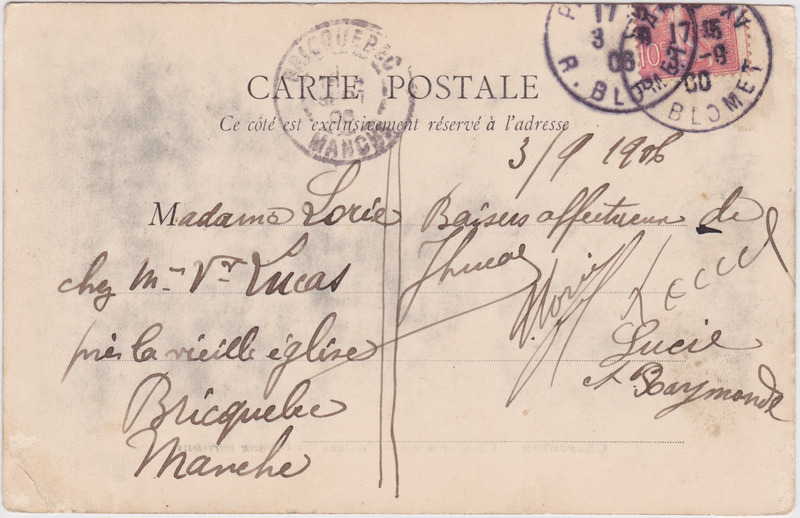 CARTE POSTALE
Ce côté est exclusivement réservé à l'adresse
BRICQUEBEC
MANCHE
17
3 9
06
R. BLOMET
17 15
3 -9
BLOMET
10
3/9 1906
Madame Lorie
chez Mme Vve Lucas
près la vieille église
Bricquebec
Manche
Baisers affectueux de
Lucie
et Raymonde